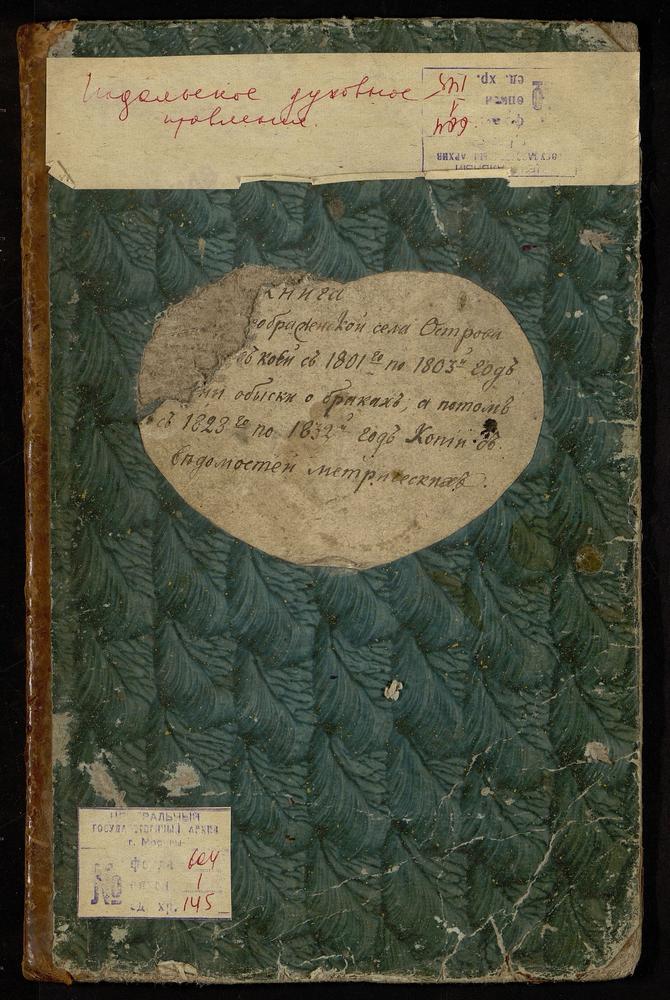 Подольское духовное
правление.
ЕД. ХР. 145
ОПИСИ 1
684
АРХИВ
Книга
еображенской села Острова
ковй съ 1801го по 1803й годъ
ни обыски о бракахъ, а потомъ
съ 1823го по 1832й годъ Копіи съ
вѣдомостей метрическихъ.
ЦЕНТРАЛЬНЫЙ
ГОСУДАРСТВЕННЫЙ АРХИВ
г. Москвы
№
фонда 684
описи 1
ед. хр. 145